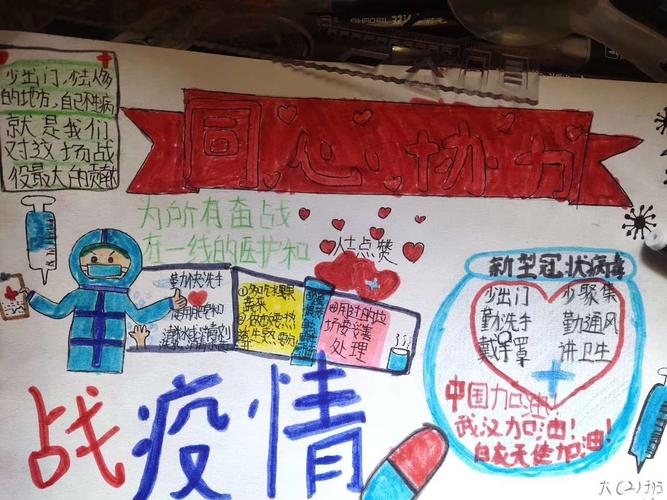 少出门,少去人多
的地方,自己不生病
就是我们
对这场战
役最大的贡献
同心协力
为所有奋战
在一线的医护和人士点赞
勤快洗手
使用肥皂和
清水
①多吃水果
蔬菜
处理
战疫情
新型冠状病毒
少出门 少聚集
勤洗手 勤通风
戴口罩 讲卫生
中国加油!
武汉加油!
白衣天使加油!
六(2)班